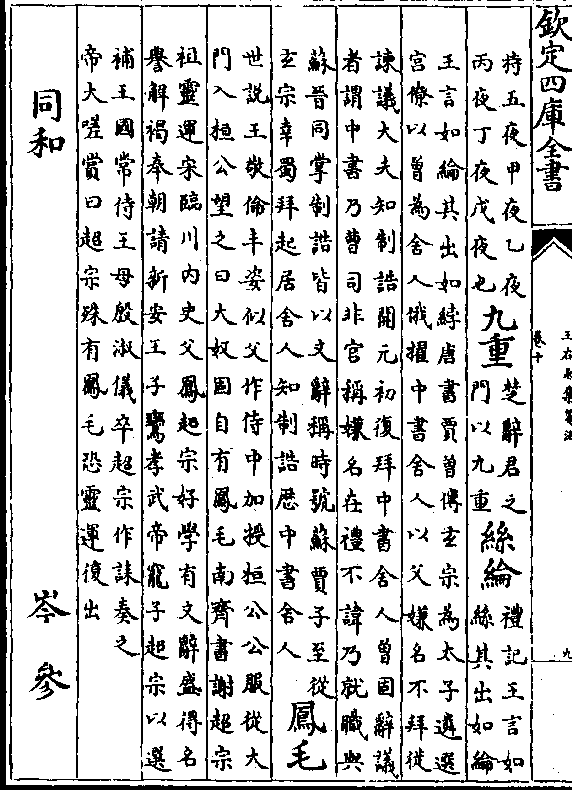 欽定四庫全書
王右丞集箋注
卷十
九
持五夜甲夜乙夜
丙夜丁夜戊夜也
九重
楚辭君之
門以九重
絲綸
禮記王言如
絲其出如綸
王言如綸其出如綍唐書賈曾傳玄宗為太子遴選
宮僚以曾為舍人俄擢中書舍人以父嫌名不拜徙
諫議大夫知制誥開元初復拜中書舍人曾固辭議
者謂中書乃曹司非官稱嫌名在禮不諱乃就職與
蘇晉同掌制誥皆以文辭稱時號蘇賈子至從
玄宗幸蜀拜起居舍人知制誥歷中書舍人
鳳毛
世說王敬倫丰姿似父作侍中加授桓公公服從大
門入桓公望之曰大奴固自有鳳毛南齊書謝超宗
祖靈運宋臨川內史父鳳超宗好學有文辭盛得名
譽解褐奉朝請新安王子鸞孝武帝寵子超宗以選
補王國常侍王母殷淑儀卒超宗作誄奏之
帝大嗟賞曰超宗殊有鳳毛恐靈運復出
同和
岑參